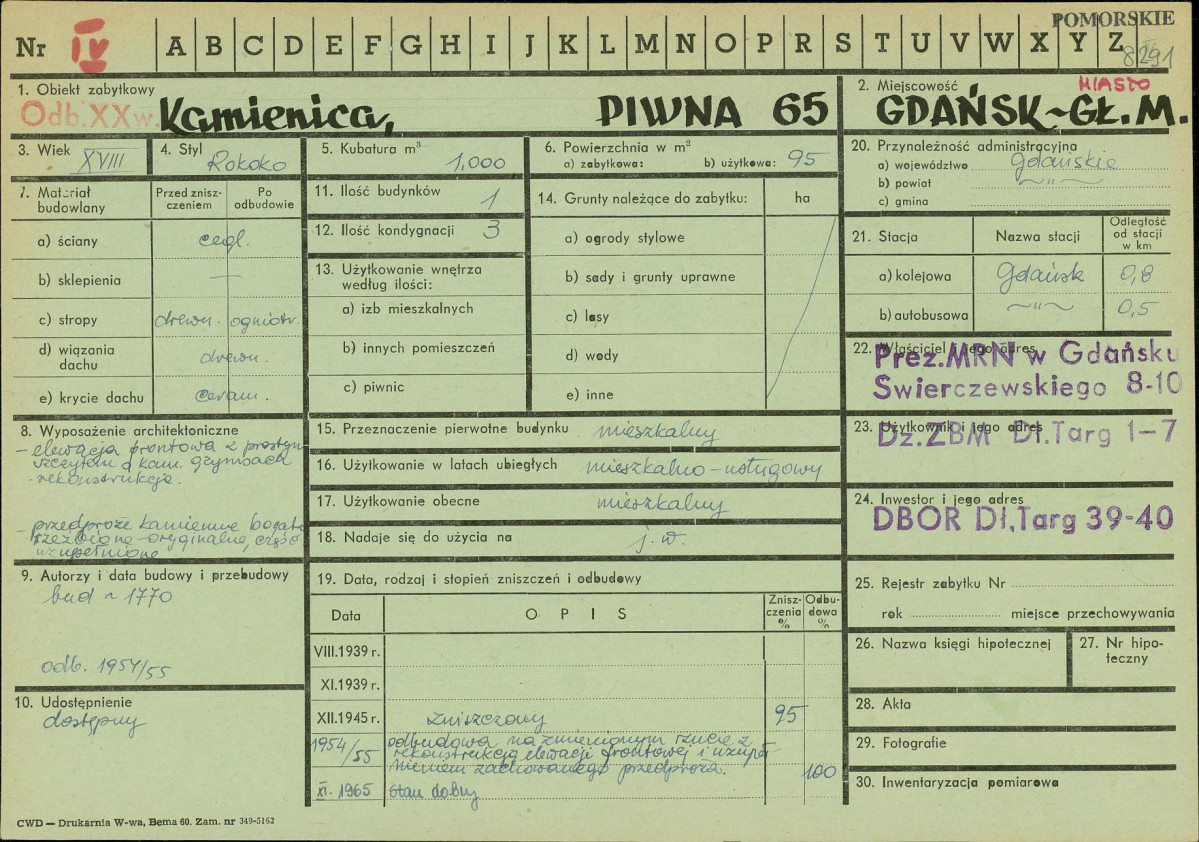 POMORSKIE
Nr IV A B C D E F G H I J K L M N O P R S T U V W X Y Z
8291
1. Obiekt zabytkowy
Odb. XX w. Kamienica, PIWNA 65
2. Miejscowość MIASTO
GDAŃSK-GŁ.M.
3. Wiek XVIII
4. Styl Rokoko
5. Kubatura m³ 1,000
6. Powierzchnia w m²
a) zabytkowa: b) użytkowa: 95
7. Materiał budowlany
Przed zniszczeniem
Po odbudowie
a) ściany cegl.
b) sklepienia —
c) stropy drewn. ogniotr.
d) wiązania dachu drewn.
e) krycie dachu ceram.
8. Wyposażenie architektoniczne
- elewacja frontowa z prostym
szczytem o kam. gzymsach
- rekonstrukcja.
- przedproże kamienne bogato
rzeźbione - oryginalne, część
uzupełniona
9. Autorzy i data budowy i przebudowy
bud ~ 1770
odb. 1954/55
10. Udostępnienie
dostępny
11. Ilość budynków 1
12. Ilość kondygnacji 3
13. Użytkowanie wnętrza według ilości:
a) izb mieszkalnych
b) innych pomieszczeń
c) piwnic
14. Grunty należące do zabytku: ha
a) ogrody stylowe
b) sady i grunty uprawne
c) lasy
d) wody
e) inne
15. Przeznaczenie pierwotne budynku mieszkalny
16. Użytkowanie w latach ubiegłych mieszkalno-usługowy
17. Użytkowanie obecne mieszkalny
18. Nadaje się do użycia na j.w.
19. Data, rodzaj i stopień zniszczeń i odbudowy
Data OPIS Zniszczenia % Odbudowa %
VIII.1939 r.
XI.1939 r.
XII.1945 r. zniszczony 95
1954/55 odbudowa na zmienionym rzucie z
rekonstrukcją elewacji frontowej i uzupeł-
nieniem zachowanego przedproża. 100
XI. 1965 stan dobry
20. Przynależność administracyjna
a) województwo gdańskie
b) powiat ~"~
c) gmina
21. Stacja Nazwa stacji Odległość od stacji w km
a) kolejowa Gdańsk 0,8
b) autobusowa ~"~ 0,5
22. Właściciel i jego adres
Prez.MRN w Gdańsku
Swierczewskiego 8-10
23. Użytkownik i jego adres
Dz.ZBM Dł.Targ 1-7
24. Inwestor i jego adres
DBOR Dł,Targ 39-40
25. Rejestr zabytku Nr
rok miejsce przechowywania
26. Nazwa księgi hipotecznej
27. Nr hipoteczny
28. Akta
29. Fotografie
30. Inwentaryzacja pomiarowa
CWD — Drukarnia W-wa, Bema 60. Zam. nr 349-5162